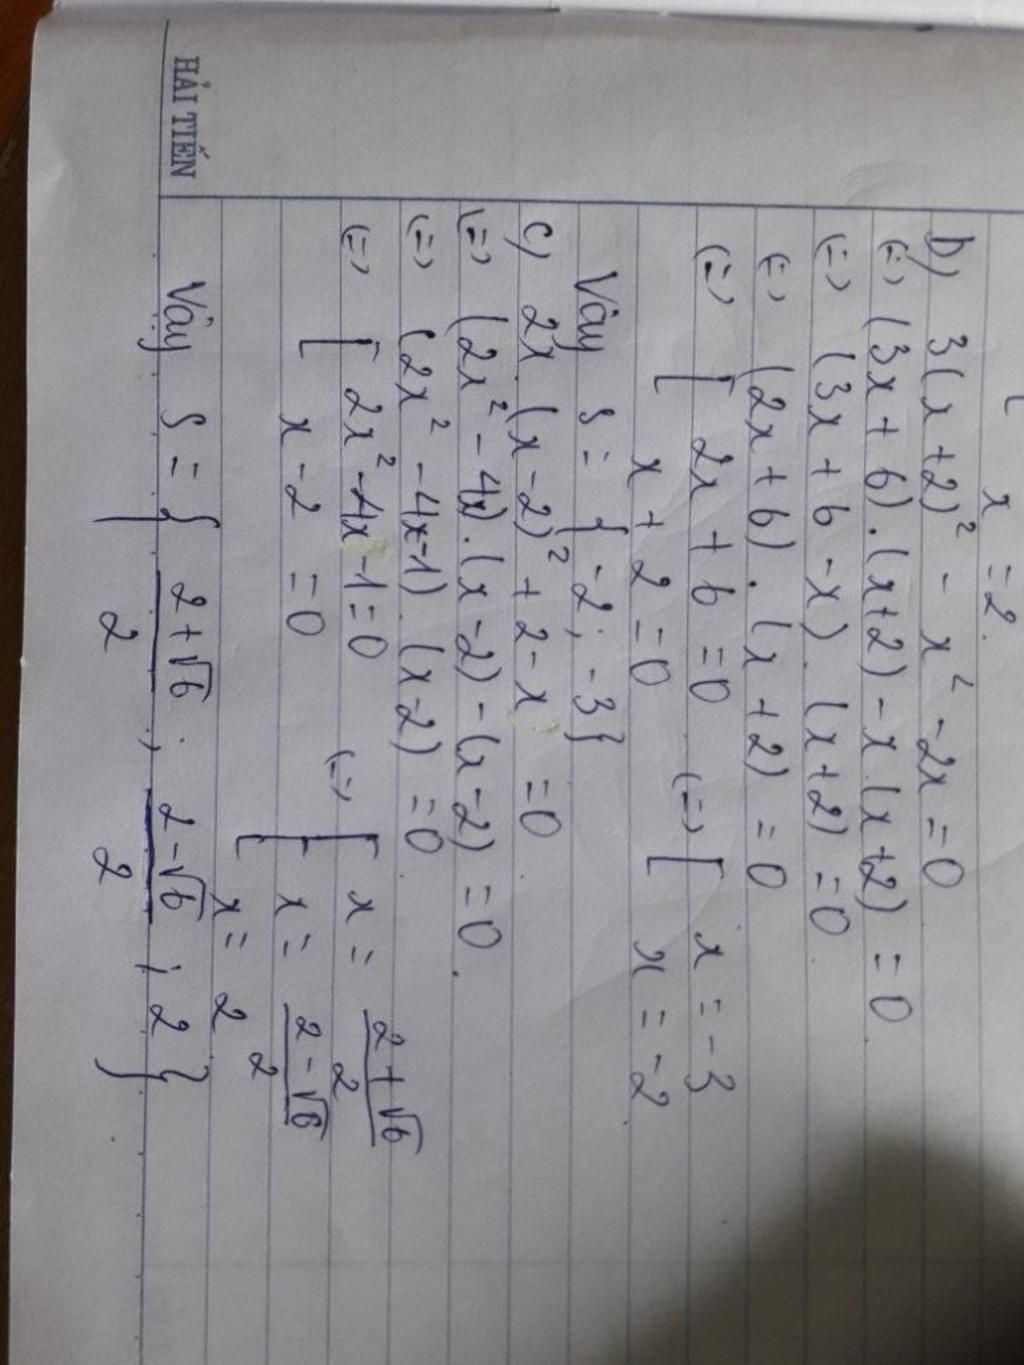 x = 2.
b) 3(x+2)² - x² - 2x = 0
(=) (3x+6).(x+2) - x.(x+2) = 0
(=) (3x+6-x).(x+2) = 0
(=) (2x+6).(x+2) = 0
(=) [ 2x+6 = 0 (=) [ x = -3
x+2 = 0 x = -2
Vậy S = {-2; -3}
c) 2x.(x-2)² + 2 - x = 0
(=) (2x² - 4x).(x-2) - (x-2) = 0.
(=) (2x² - 4x-1).(x-2) = 0
(=) [ 2x² - 4x - 1 = 0 (=) [ x = (2+√6)/2
x - 2 = 0 x = (2-√6)/2
x = 2
Vậy S = { (2+√6)/2 ; (2-√6)/2 ; 2 }
HẢI TIẾN